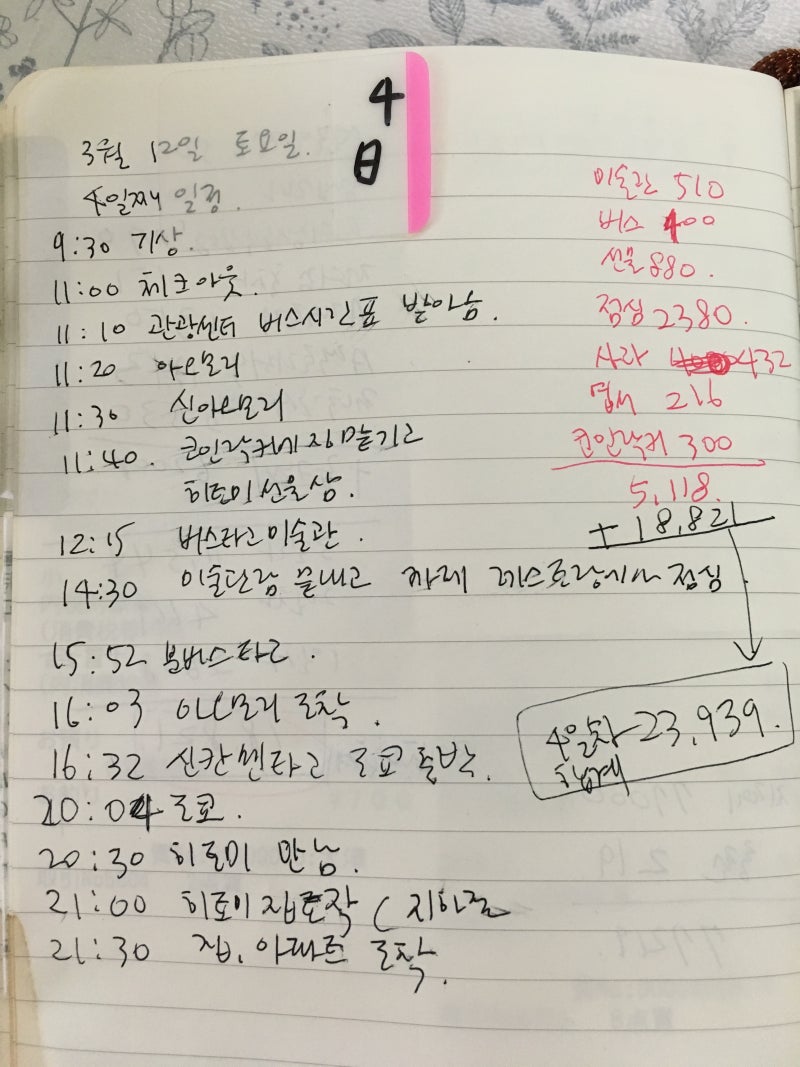 4
日
3월 12일 토요일.
4일째 일정.
9:30 기상.
11:00 체크아웃.
11:10 관광센터 버스시간표 받아놈.
11:20 아오모리
11:30 신아오모리
11:40. 코인락커에 짐맡기고
히토미선물삼.
12:15 버스타고미술관.
14:30 미술관람 끝내고 카레 레스토랑에서 점심
15:52 버스타고.
16:03 아오모리 도착.
16:32 신칸센타고 도쿄출발.
20:04 도쿄.
20:30 히토미 만남.
21:00 히토미집도착 (지하철
21:30 집, 아파트 도착.
미술관 510
버스 400
선물 880.
점심 2380.
사과 432
엽서 216
코인락커 300
5,118.
+ 18,821
4일차 23,939.
합계